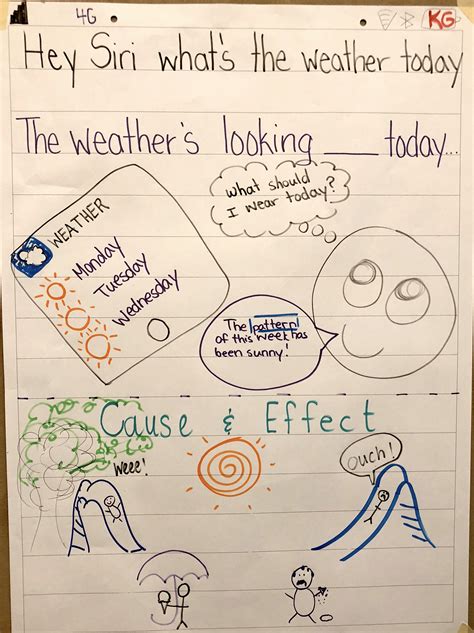 4G
KG
Hey Siri what's the weather today
The weather's looking ___ today...
What should
I wear today?
WEATHER
Monday
Tuesday
Wednesday
The pattern
of this week has
been sunny!
Cause & Effect
Weee!
Ouch!